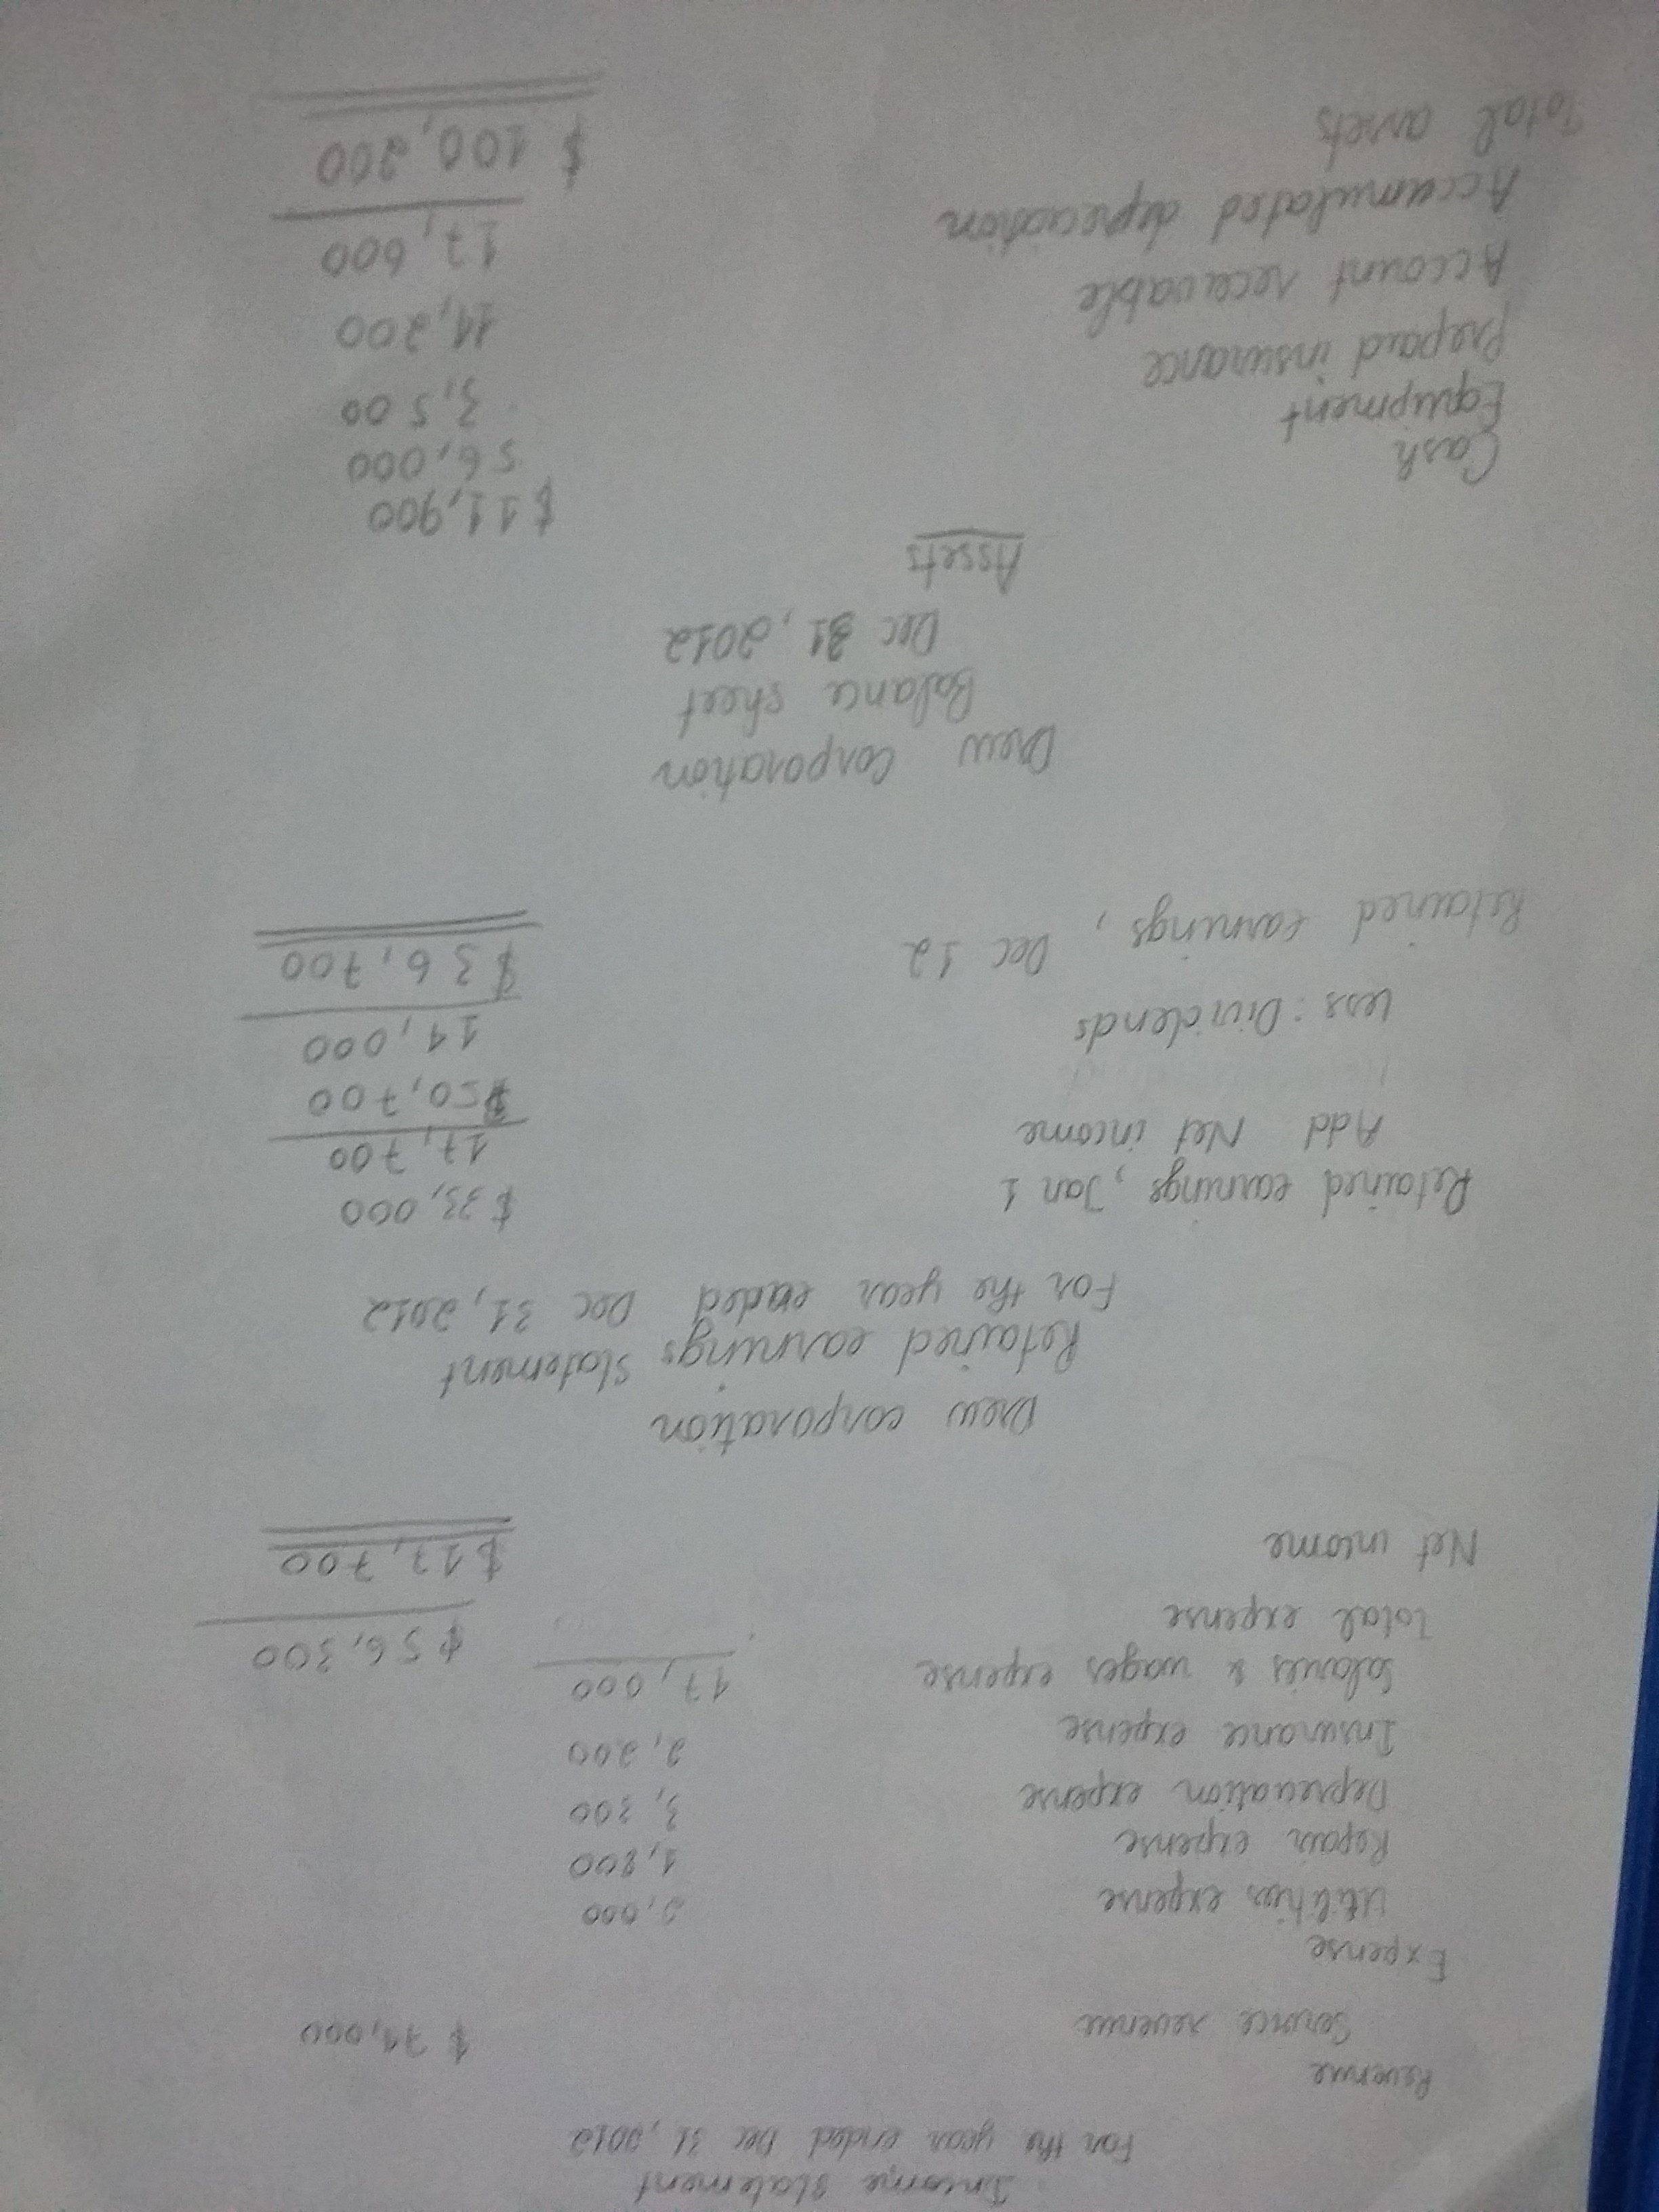 Income Statement
For the year ended Dec 31, 2012
Revenue
Service revenue $ 74,000
Expense
Utilities expense 2,000
Repair expense 1,800
Depreciation expense 3,300
Insurance expense 2,200
Salaries & wages expense 17,000
Total expense $ 56,300
Net income $ 17,700
Drew corporation
Retained earnings statement
For the year ended Dec 31, 2012
Retained earnings, Jan 1 $ 33,000
Add Net income 17,700
$50,700
Less: Dividends 14,000
Retained earnings, Dec 12 $ 36,700
Drew Corporation
Balance sheet
Dec 31, 2012
Assets
Cash $ 11,900
Equipment 56,000
Prepaid insurance 3,500
Account receivable 11,200
Accumulated depreciation 17,600
Total assets $ 100,200